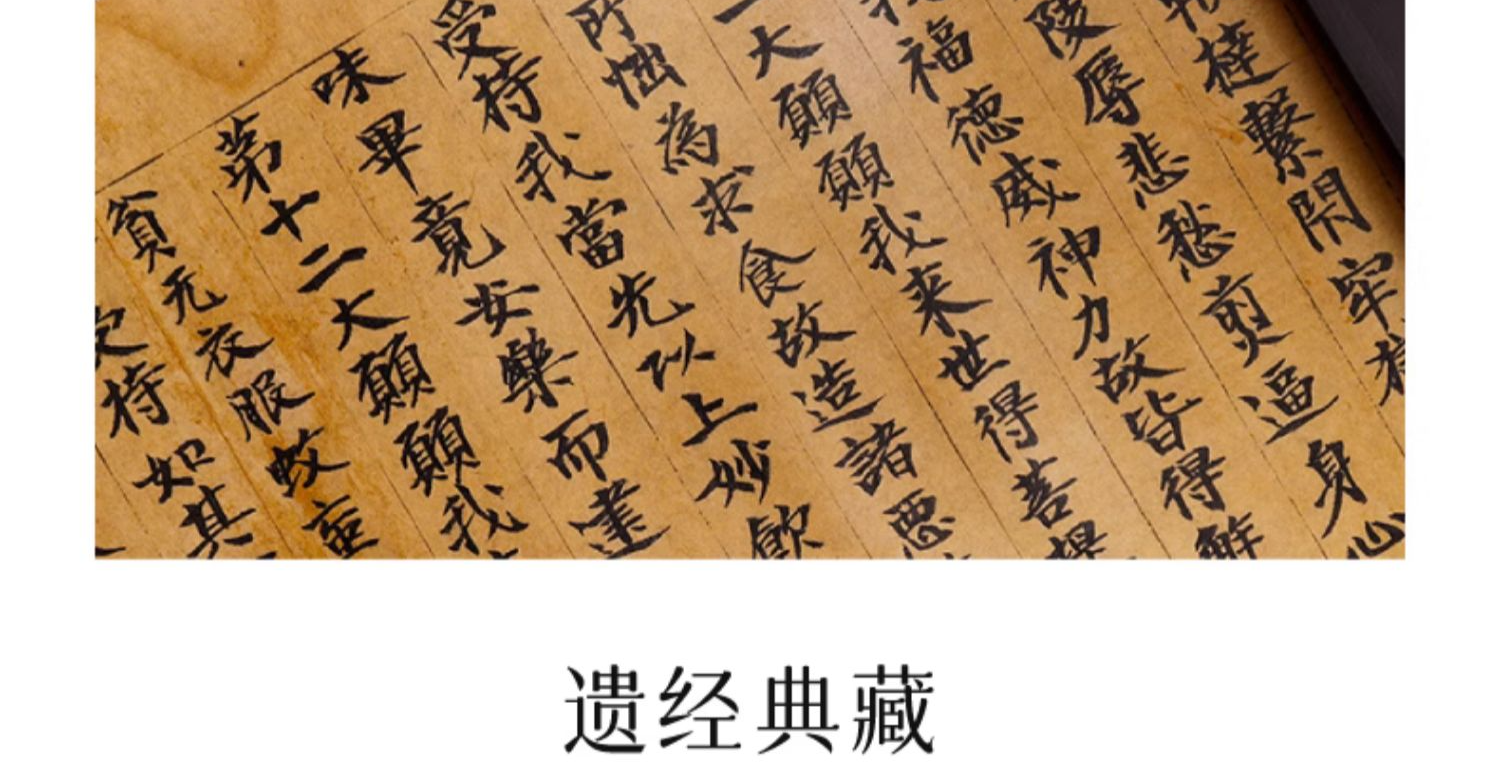 撻繫閇牢
陵辱悲愁煎逼身心
福德威神力故皆得解
一大願願我来世得菩提
所惱為求食故造諸惡
受持我當先以上妙飲
味畢竟安樂而建
第十二大願願我
貧无衣服蚊虻
持如其
遗经典藏